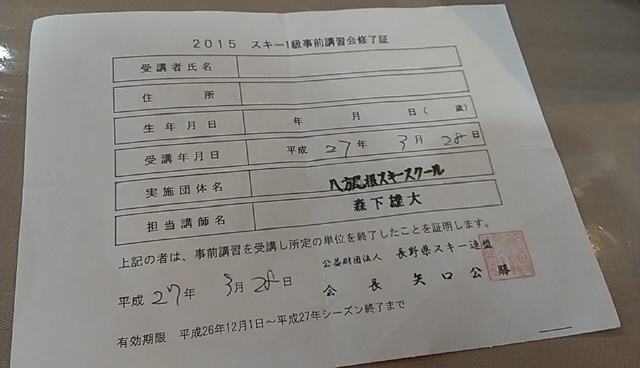 2015 スキー1級事前講習会修了証
受講者氏名
住 所
生年月日 年 月 日( 歳)
受講年月日 平成 27年 3月 28日
実施団体名 八方尾根スキースクール
担当講師名 森下雄大
上記の者は、事前講習を受講し所定の単位を終了したことを証明します。
平成 27年 3月 28日
公益財団法人 長野県スキー連盟
会 長 矢口公勝
有効期限 平成26年12月1日~平成27年シーズン終了まで